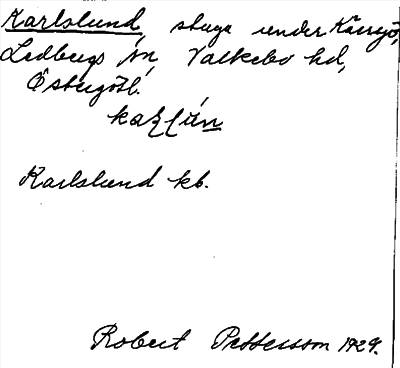 Karlslund, stuga under Kärrsjö,
Ledbergs sn, Valkebo hd,
Östergötl.
Karlslund kb.
Robert Pettersson 1929.